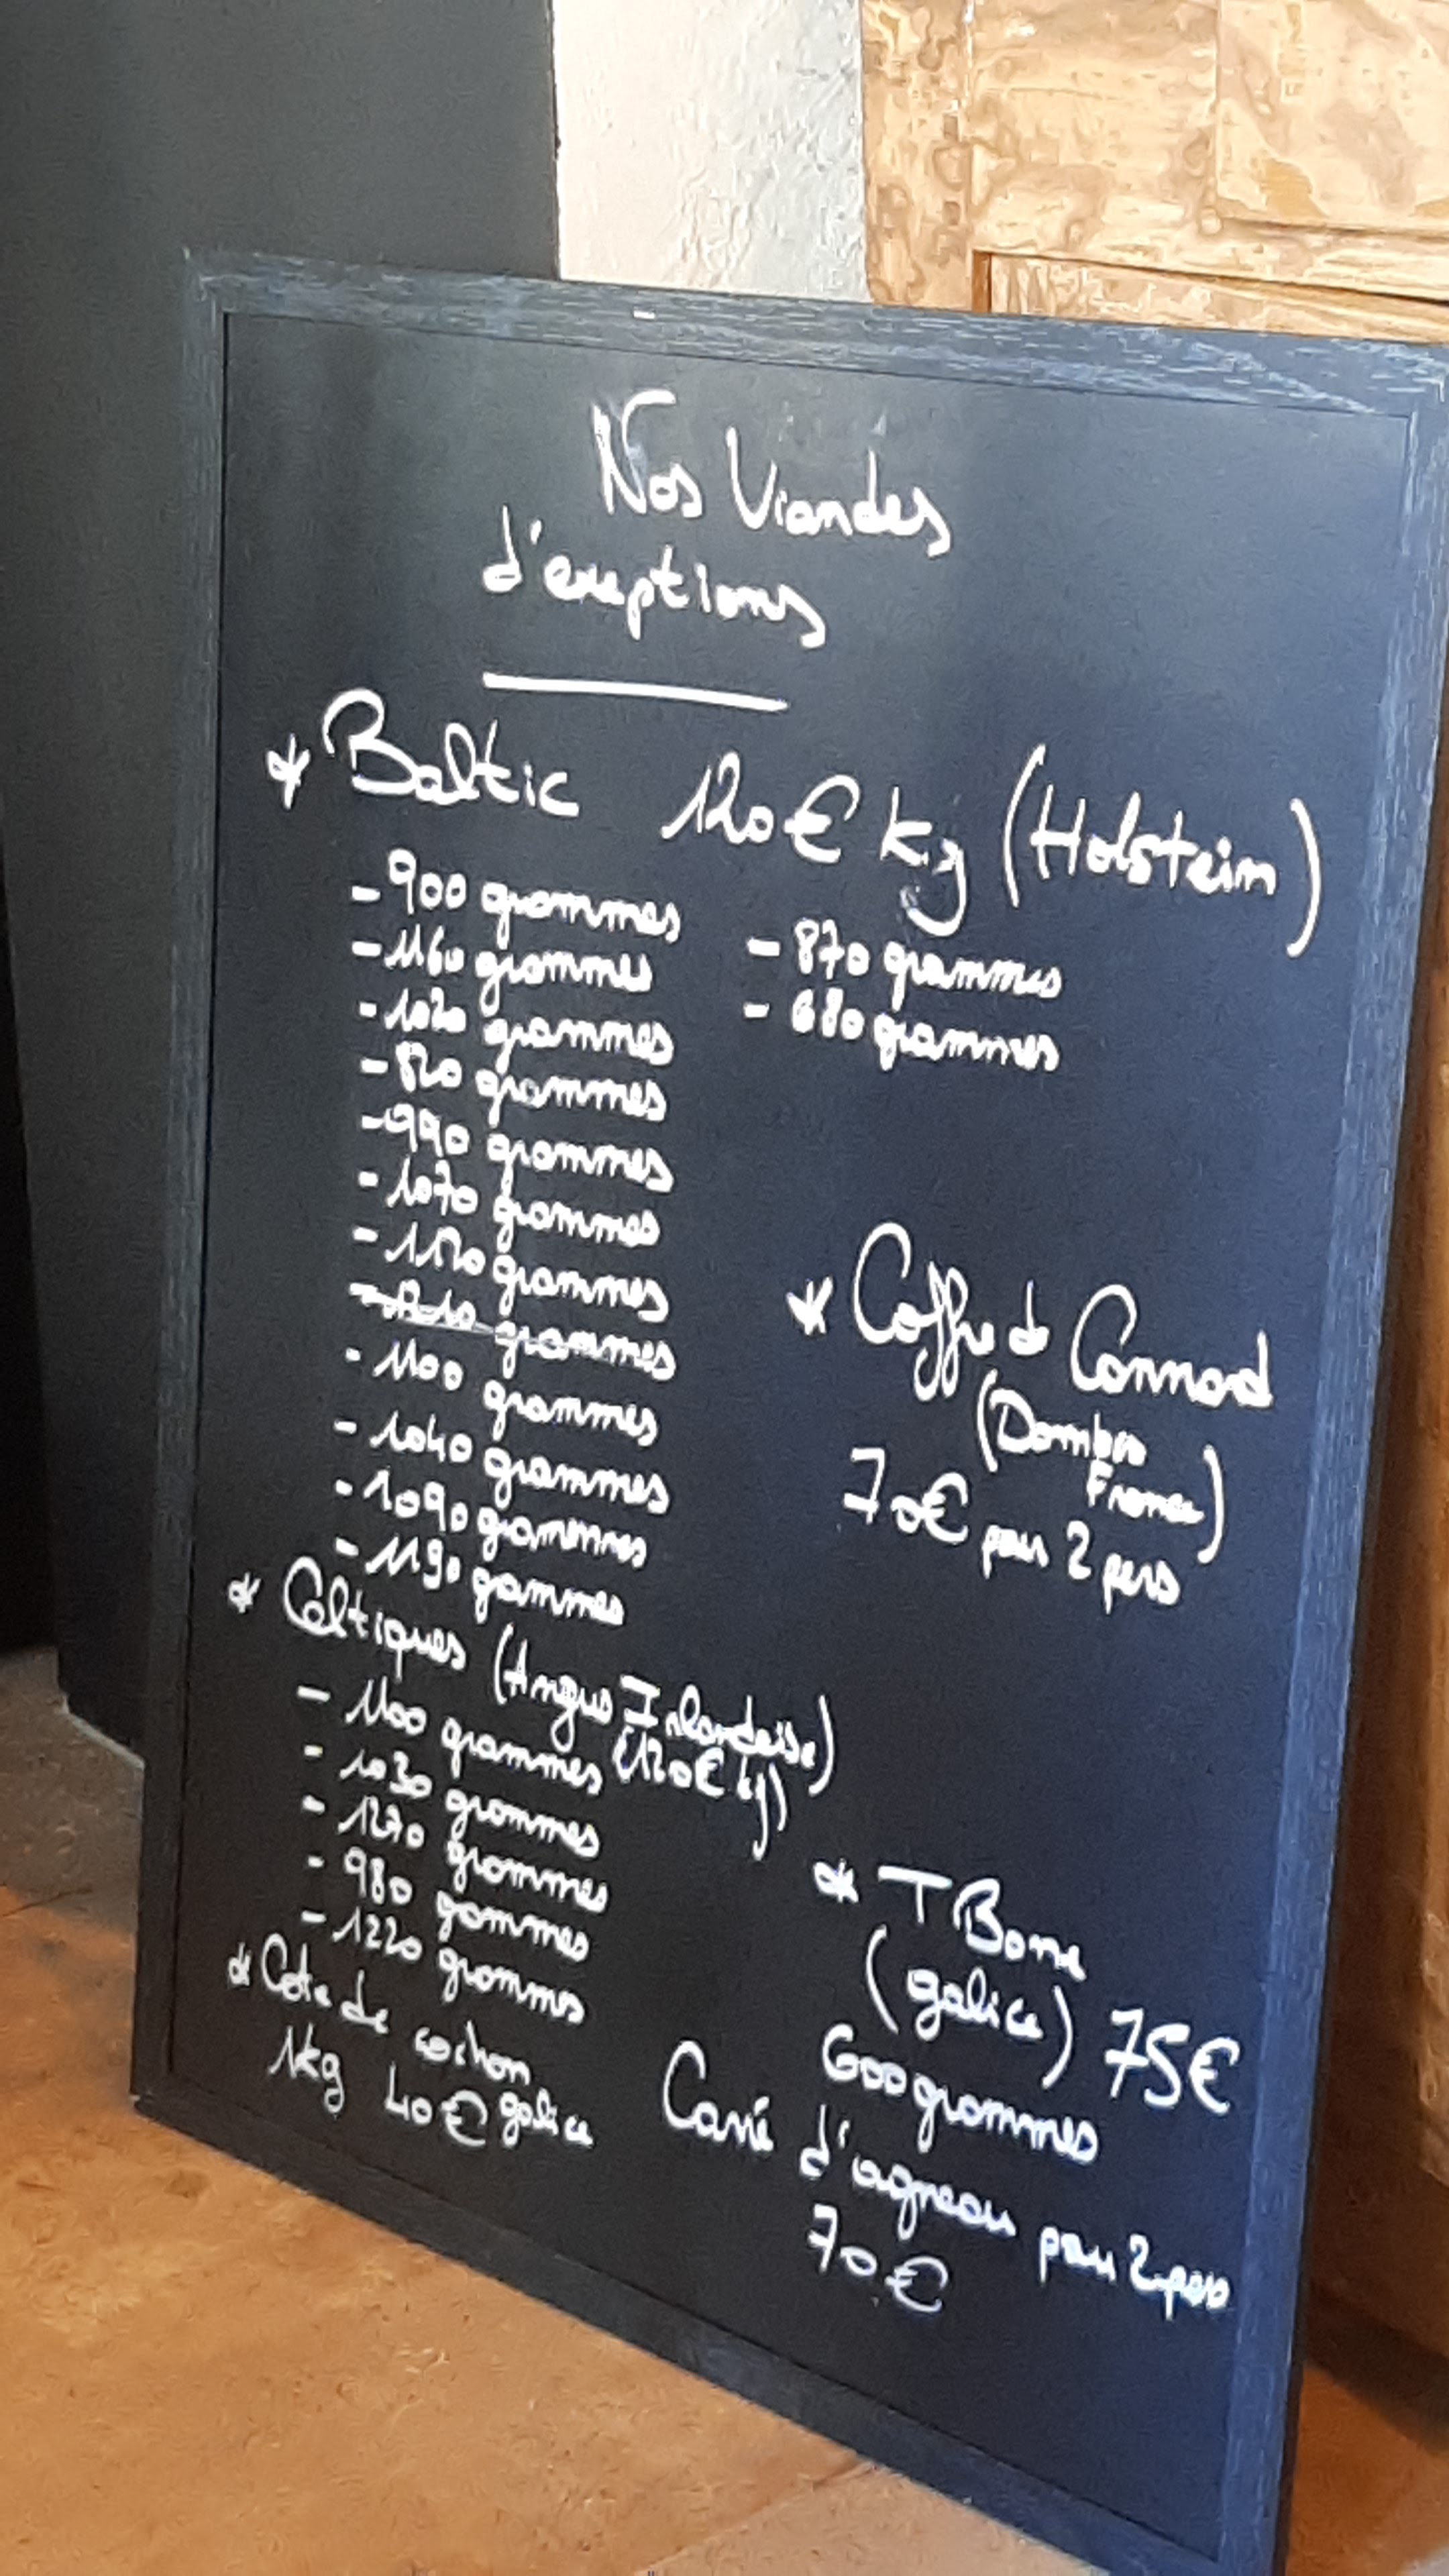 Nos Viandes
d'exeptions
* Baltic 120€ kg (Holstein)
- 900 grammes
- 1160 grammes
- 1020 grammes
- 820 grammes
- 990 grammes
- 1070 grammes
- 1120 grammes
grammes
- 1100 grammes
- 1040 grammes
- 1090 grammes
- 1190 gammes
- 870 grammes
- 680 grammes
* Coffre de Connard
(Dombes
France)
70€ pour 2 pers
* Celtiques (Angus Irlandaise)
(120€ kg)
- 1100 grammes
- 1030 grammes
- 1270 grammes
- 980 gammes
- 1220 grammes
* Cote de cochon
1kg 40€ galice
* T Bone
(galice) 75€
600 grammes
Carré d'agneau pour 2 pers
70€